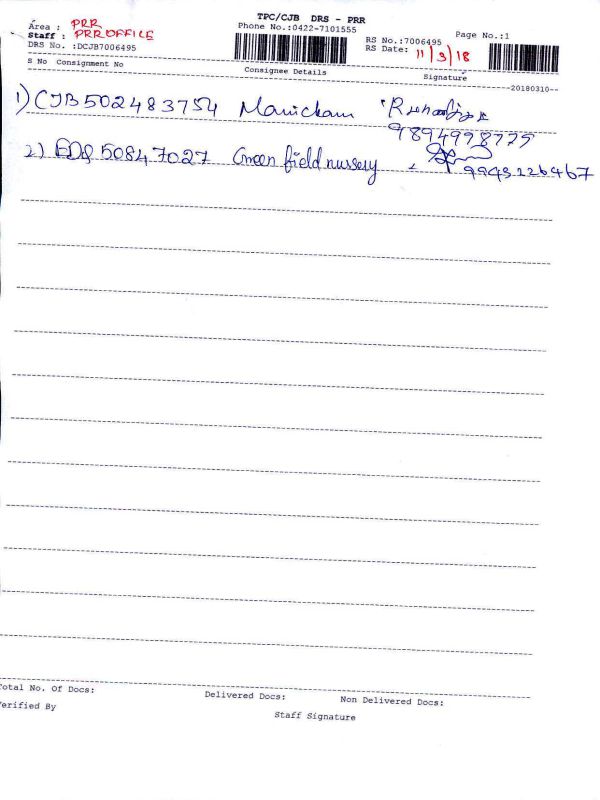 TPC/CJB DRS - PRR
Area : PRR
Phone No.:0422-7101555
Page No.:1
Staff : PRR OFFICE
RS No.:7006495
DRS No. :DCJB7006495
RS Date: 11/3/18
S No Consignment No Consignee Details Signature
--20180310--
1) CJB502483754 Manickam
9894998775
2) 50847027 Green field nursery
9943126467
Total No. Of Docs: Delivered Docs: Non Delivered Docs:
Verified By
Staff Signature